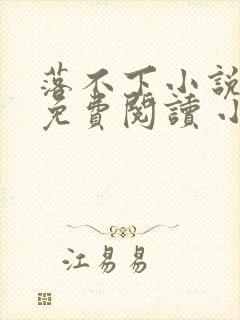 落不下小說
免費閱讀 小
江易易